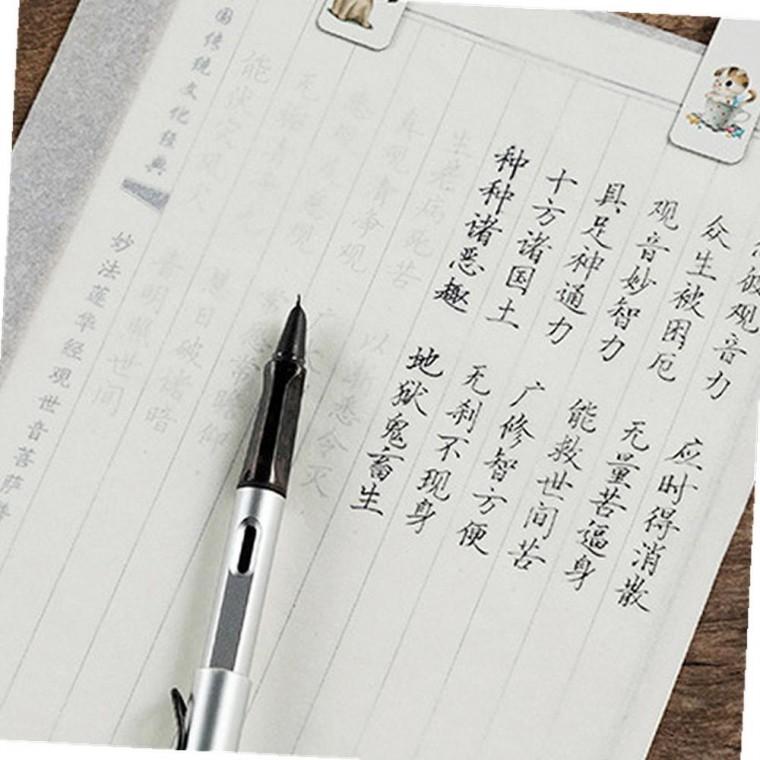 彼观音力 应时得消散
众生被困厄 无量苦逼身
观音妙智力 能救世间苦
具足神通力 广修智方便
十方诸国土 无刹不现身
种种诸恶趣 地狱鬼畜生
生老病死苦 以渐悉令灭
真观清净观
慧日破诸暗
能伏灾风火 普明照世间
国传统文化经典 妙法莲华经观世音菩萨